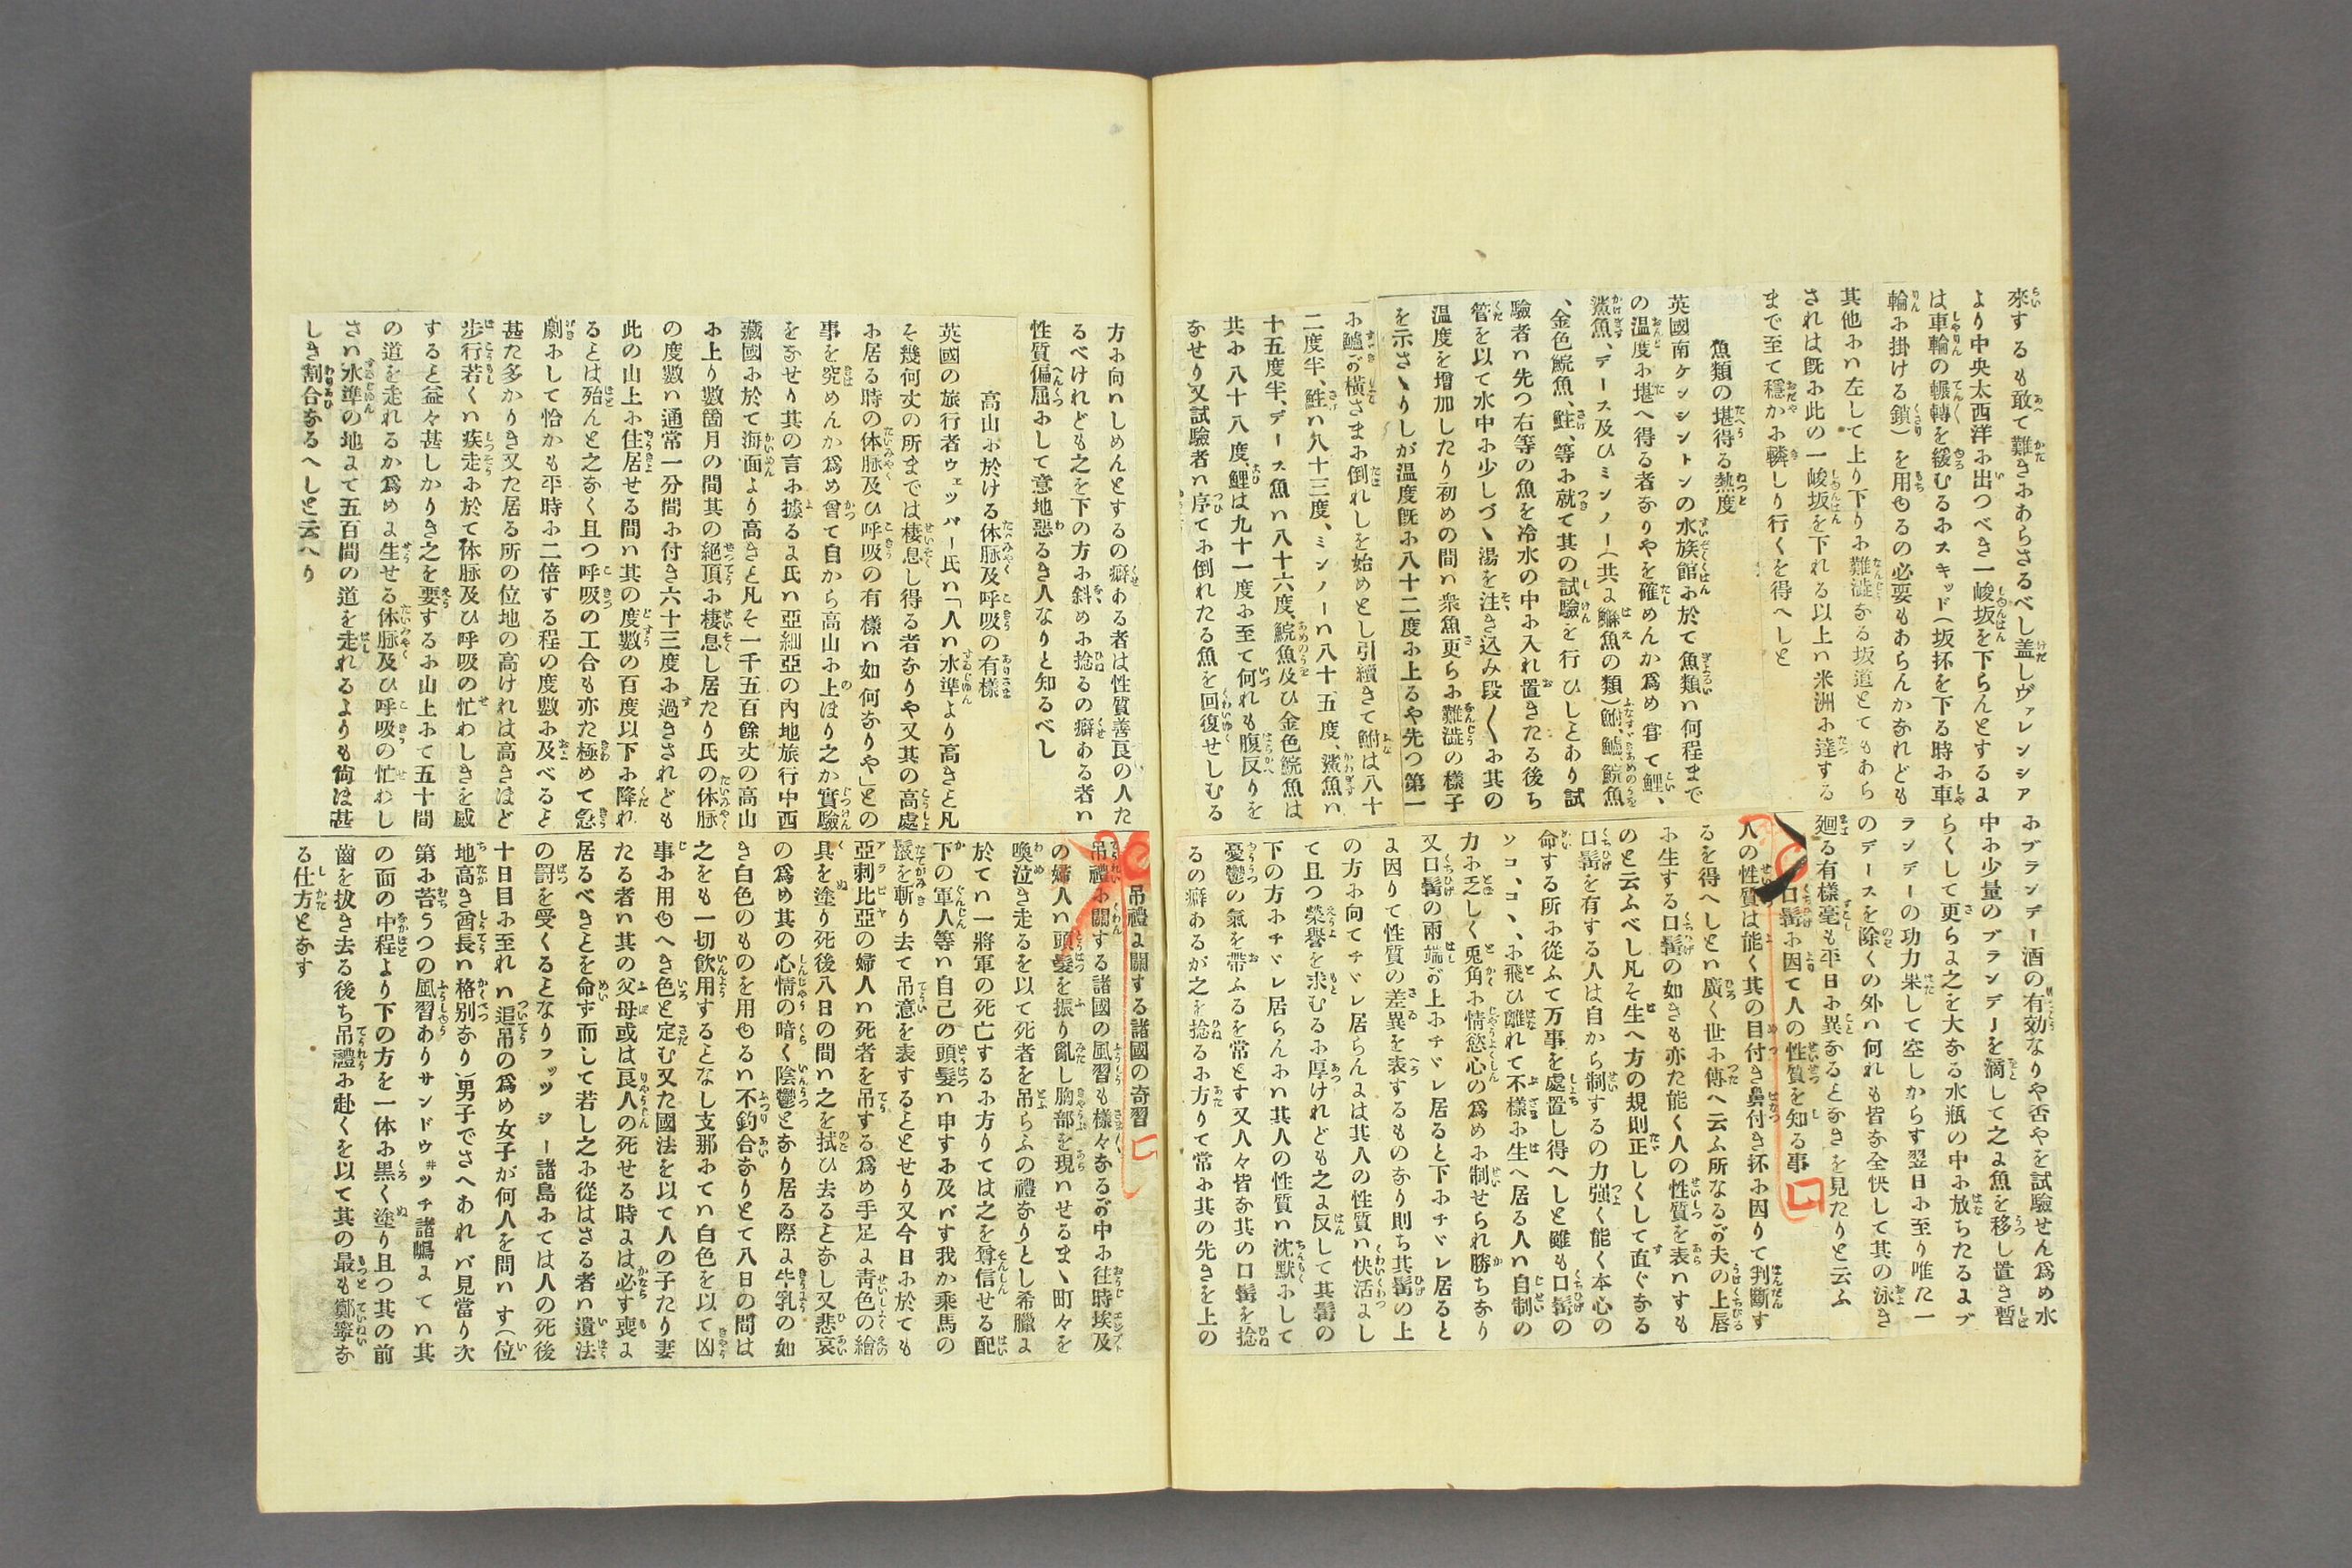 來するも敢て難きにあらさるべし盖しヴァレンシア
より中央太西洋に出つべき一峻坂を下らんとするよ
は車輪の輾轉を緩むるにスキッド(坂抔を下る時に車
輪に掛ける鎖)を用ゆるの必要もあらんかなれども
其他には左して上り下りに難澁なる坂道とてもあら
されは旣に此の一峻坂を下れる以上は米洲に達する
まで至て穩かに轔しり行くを得へしと
魚類の堪得る熱度
英國南ケンシントンの水族館に於て魚類は何程まで
の温度に堪へ得る者なりやを確めんか爲め甞て鯉、
鯊魚、デース及ひミンノー(共よ鰷魚の類)鮒、鱸、鯇魚
、金色鯇魚、鮏、等に就て其の試驗を行ひしとあり試
驗者は先つ右等の魚を冷水の中に入れ置きたる後ち
管を以て水中に少しづゝ湯を注き込み段〱に其の
温度を增加したり初めの間は衆魚更らに難澁の樣子
を示さゝりしが温度旣に八十二度に上るや先つ第一
に鱸が橫さまに倒れしを始めとし引續きて鮒は八十
二度半、鮏は八十三度、ミンノーは八十五度、鯊魚は
十五度半、デース魚は八十六度、鯇魚及ひ金色鯇魚は
共に八十八度、鯉は九十一度に至て何れも腹反りを
なせり又試驗者は序てに倒れたる魚を回復せしむる
にブランデー酒の有効なりや否やを試驗せん爲め水
中に少量のブランデーを滴して之よ魚を移し置き暫
らくして更らよ之を大なる水瓶の中に放ちたるよブ
ランデーの功力果して空しからす翌日に至り唯た一
のデースを除くの外は何れも皆な全快して其の泳き
廻る有樣毫も平日に異なるとなきを見たりと云ふ
口髯に因て人の性質を知る事
人の性質は能く其の目付き鼻付き抔に因りて判斷す
るを得へしとは廣く世に傳へ云ふ所なるが夫の上唇
に生する口髯の如きも亦た能く人の性質を表はすも
のと云ふべし凡そ生へ方の規則正しくして直ぐなる
口髯を有する人は自から制するの力强く能く本心の
命する所に從ふて万事を處置し得へしと雖も口髯の
ソコ、コヽに飛ひ離れて不樣に生へ居る人は自制の
力に乏しく兎角に情慾心の爲めに制せられ勝ちなり
又口髯の兩端が上にチヾレ居ると下にチヾレ居ると
よ因りて性質の差異を表するものなり則ち其髯の上
の方に向てチヾレ居らんよは其人の性質は快活よし
て且つ榮譽を求むるに厚けれども之よ反して其髯の
下の方にチヾレ居らんには其人の性質は沈默にして
憂鬱の氣を帶ふるを常とす又人々皆な其の口髯を捻
るの癖あるが之を捻るに方りて常に其の先きを上の
方に向はしめんとするの癖ある者は性質善良の人た
るべけれども之を下の方に斜めに捻るの癖ある者は
性質偏屈にして意地惡るき人なりと知るべし
高山に於ける体脉及呼吸の有樣
英國の旅行者ウェッバー氏は「人は水準より高きと凡
そ幾何丈の所までは棲息し得る者なりや又其の高處
に居る時の体脉及ひ呼吸の有樣は如何なりや」との
事を究めんか爲め曾て自から高山に上ほり之か實驗
をなせり其の言に據るよ氏は亞細亞の內地旅行中西
藏國に於て海面より高きと凡そ一千五百餘丈の高山
に上り數箇月の間其の絕頂に棲息し居たり氏の体脉
の度數は通常一分間に付き六十三度に過きされども
此の山上に住居せる間は其の度數の百度以下に降れ
るとは殆んと之なく且つ呼吸の工合も亦た極めて急
劇にして恰かも平時に二倍する程の度數に及べると
甚た多かりき又た居る所の位地の高けれは高きほど
步行若くは疾走に於て体脉及ひ呼吸の忙わしきを感
すると益々甚しかりき之を要するに山上にて五十間
の道を走れるか爲めよ生せる体脉及ひ呼吸の忙わし
さは水準の地よて五百間の道を走れるよりも尙ほ甚
しき割合なるへしと云へり
吊禮よ關する諸國の奇習
吊禮に關する諸國の風習も樣々なるが中に往時埃及
の婦人は頭髮を振り亂し胸部を現はせるまゝ町々を
喚泣き走るを以て死者を吊らふの禮なりとし希臘よ
於ては一將軍の死亡するに方りては之を尊信せる配
下の軍人等は自己の頭髮は申すに及バす我か乘馬の
鬣を斬り去て吊意を表するととせり又今日に於ても
亞剌比亞の婦人は死者を吊する爲め手足よ靑色の繪
具を塗り死後八日の間は之を拭ひ去るとなし又悲哀
の爲め其の心情の暗く陰鬱となり居る際よ牛乳の如
き白色のものを用ゆるは不釣合なりとて八日の間は
之をも一切飮用するとなし支那にては白色を以て凶
事に用ゆへき色と定む又た國法を以て人の子たり妻
たる者は其の父母或は良人の死せる時よは必す喪よ
居るべきとを命す而して若し之に從はさる者は遺法
の罰を受くるとなりフッツジー諸島にては人の死後
十日目に至れは追吊の爲め女子が何人を問はす(位
地高き酋長は格別なり)男子でさへあれバ見當り次
第に苔うつの風習ありサンドウヰッチ諸嶋よては其
の面の中程より下の方を一体に黑く塗り且つ其の前
齒を拔き去る後ち吊禮に赴くを以て其の最も鄭寧な
る仕方となす